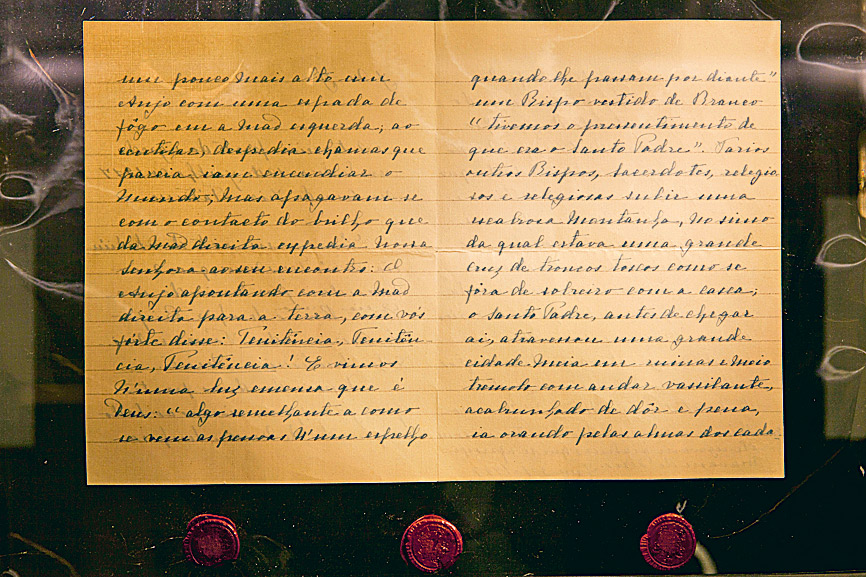 um pouco mais alto um
Anjo com uma espada de
fôgo em a mão esquerda; ao
centilar, despedia chamas que
parecia iam encendiar o
mundo; mas apagavam-se
com o contacto do brilho que
da mão direita expedia Nossa
Senhora ao seu encontro: O
Anjo apontando com a mão
direita para a terra, com vós
forte disse: Penitência, Penitên-
cia, Penitência! E vimos
n'uma luz emensa que é
Deus: "algo semelhante a como
se vem as pessoas n'um espelho
quando lhe passam por diante"
um Bispo vestido de Branco
"tivemos o pressentimento de
que era o Santo Padre". Varios
outros Bispos, sacerdotes, religio
sos e religiosas subir uma
escabrosa montanha, no simo
da qual estava uma grande
cruz de troncos toscos como se
fôra de sobreiro com a casca;
o Santo Padre, antes de chegar
aí, atravessou uma grande
cidade meia em ruinas e meio
tremolo com andar vassilante,
acabrunhado de dôr e pena,
ia orando pelas almas dos cada